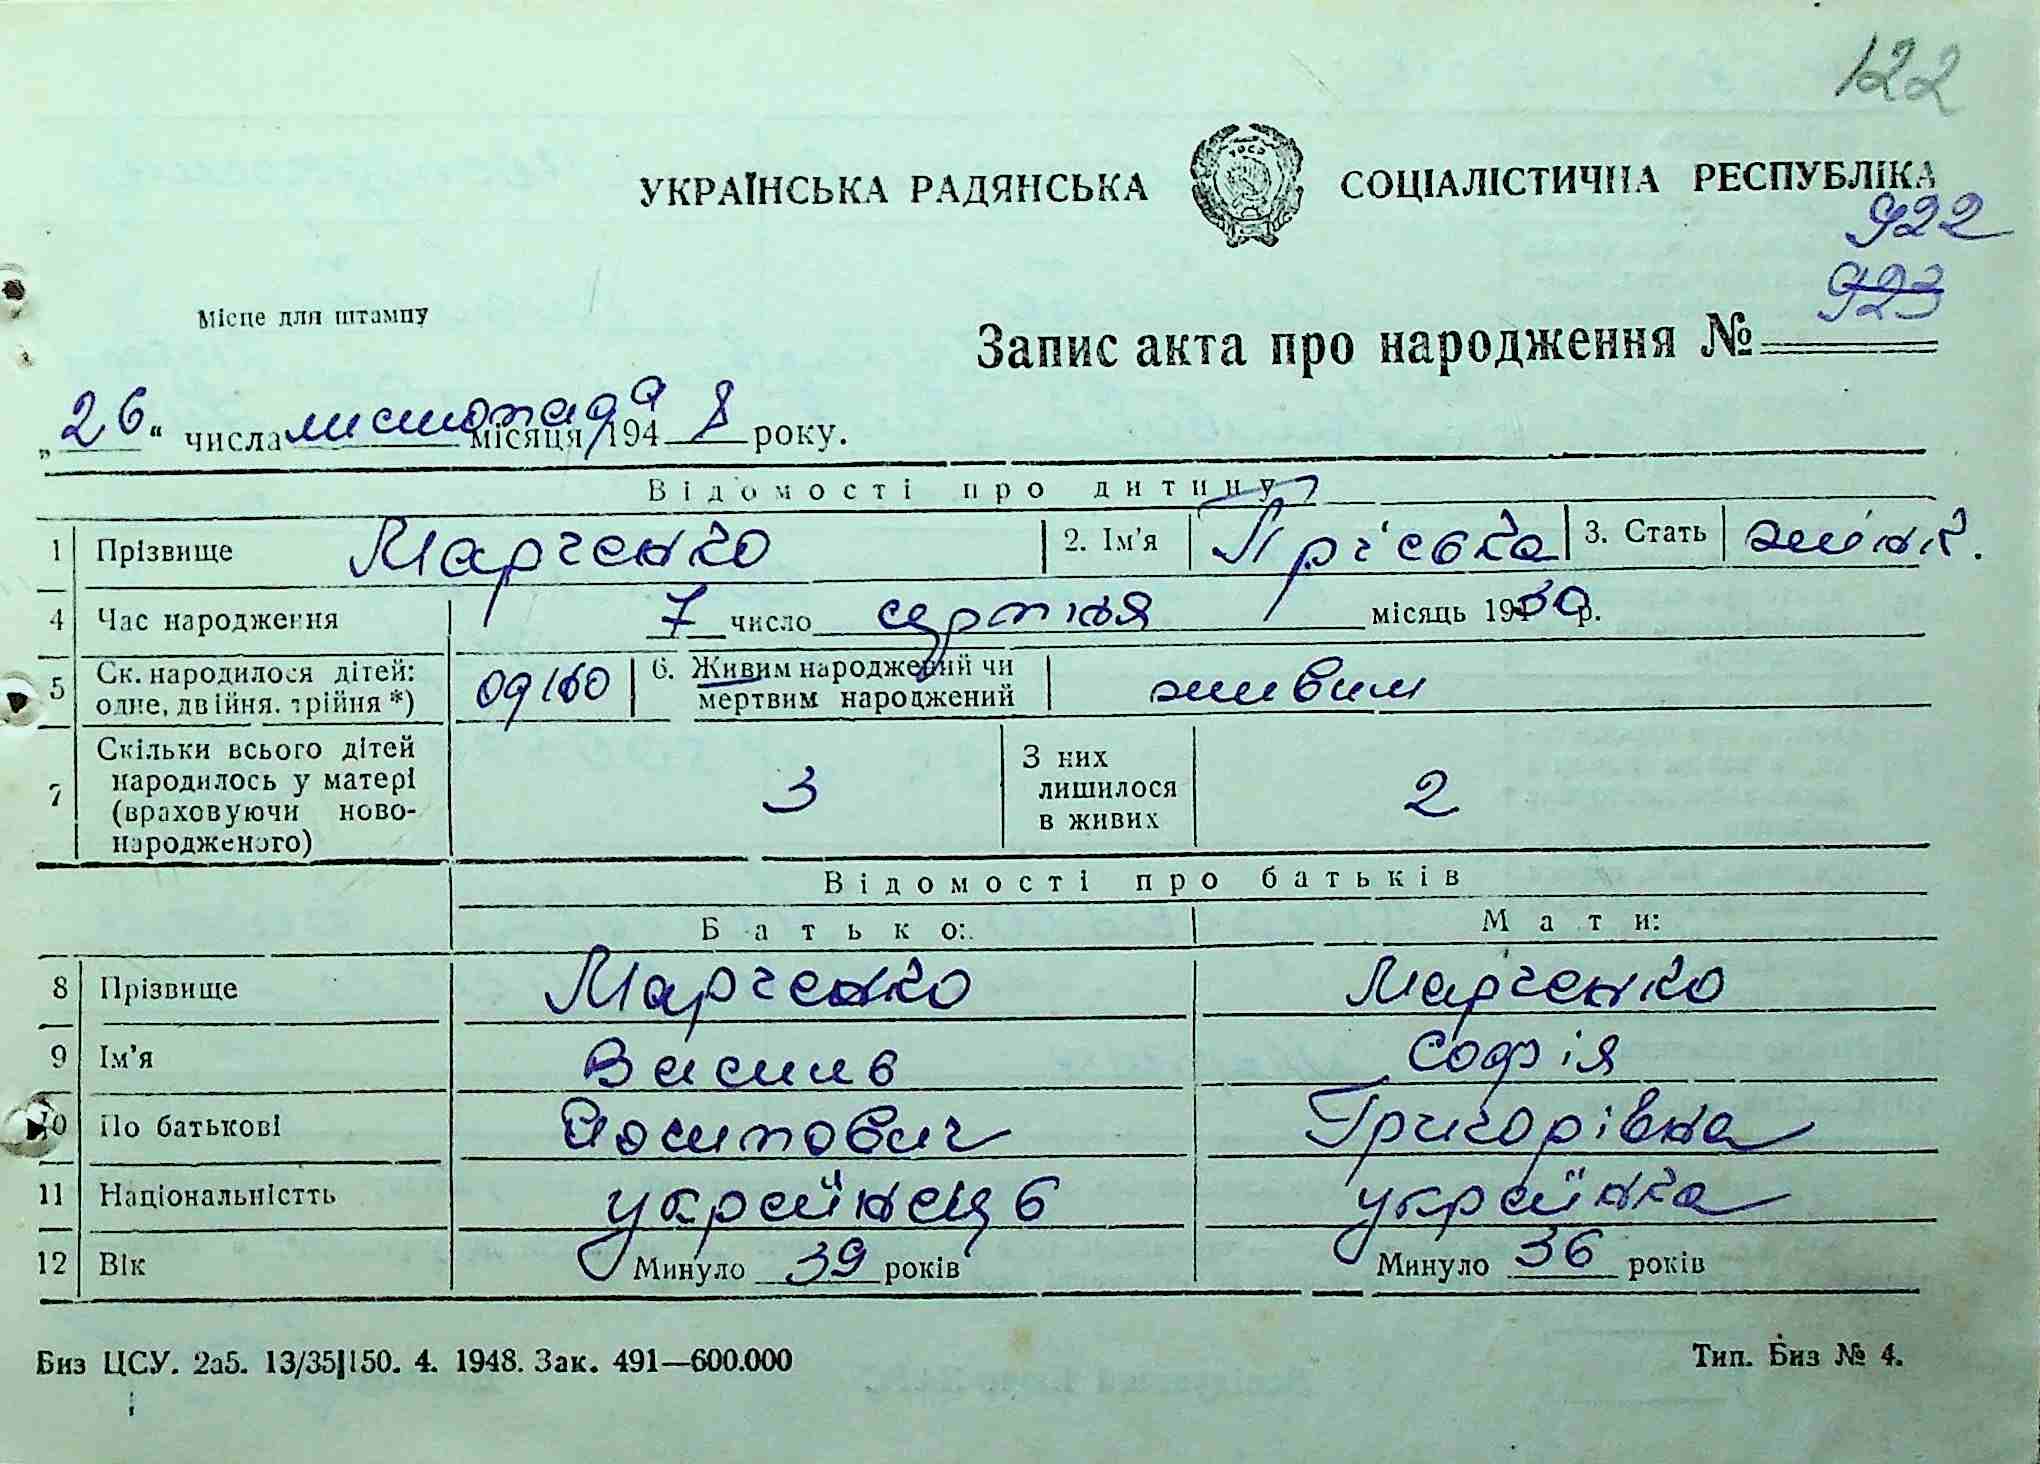 122
УКРАЇНСЬКА РАДЯНСЬКА СОЦІАЛІСТИЧНА РЕСПУБЛІКА
922
Місце для штампу
923
Запис акта про народження №
„26“ числа листопада місяця 1948 року.
Відомості про дитину
1 Прізвище Марченко 2. Ім’я 3. Стать жінк.
4 Час народження 7 число серпня місяць 1930 р.
5 Ск. народилося дітей: одне, двійня, трійня *) одно 6. Живим народжений чи мертвим народжений живим
7 Скільки всього дітей народилось у матері (враховуючи ново-народженого) 3 З них лишилося в живих 2
Відомості про батьків
Батько: Мати:
8 Прізвище Марченко Марченко
9 Ім’я Василь Софія
10 По батькові Йосипович Григорівна
11 Національністть українець українка
12 Вік Минуло 39 років Минуло 36 років
Биз ЦСУ. 2а5. 13/35|150. 4. 1948. Зак. 491—600.000 Тип. Биз № 4.